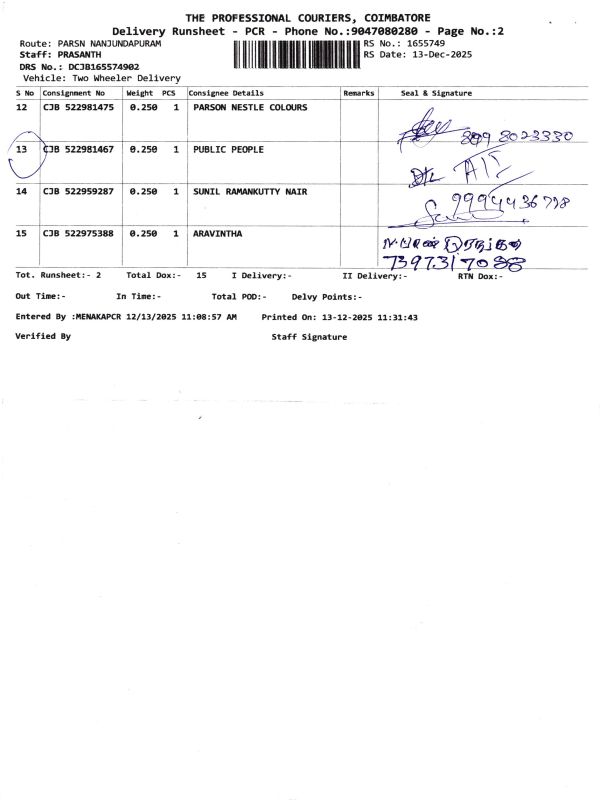 THE PROFESSIONAL COURIERS, COIMBATORE
Delivery Runsheet - PCR - Phone No.:9047080280 - Page No.:2
Route: PARSN NANJUNDAPURAM
RS No.: 1655749
Staff: PRASANTH
RS Date: 13-Dec-2025
DRS No.: DCJB165574902
Vehicle: Two Wheeler Delivery
S No Consignment No Weight PCS Consignee Details Remarks Seal & Signature
12 CJB 522981475 0.250 1 PARSON NESTLE COLOURS
13 CJB 522981467 0.250 1 PUBLIC PEOPLE
14 CJB 522959287 0.250 1 SUNIL RAMANKUTTY NAIR
15 CJB 522975388 0.250 1 ARAVINTHA
7397317088
Tot. Runsheet:- 2 Total Dox:- 15 I Delivery:- II Delivery:- RTN Dox:-
Out Time:- In Time:- Total POD:- Delvy Points:-
Entered By :MENAKAPCR 12/13/2025 11:08:57 AM Printed On: 13-12-2025 11:31:43
Verified By Staff Signature